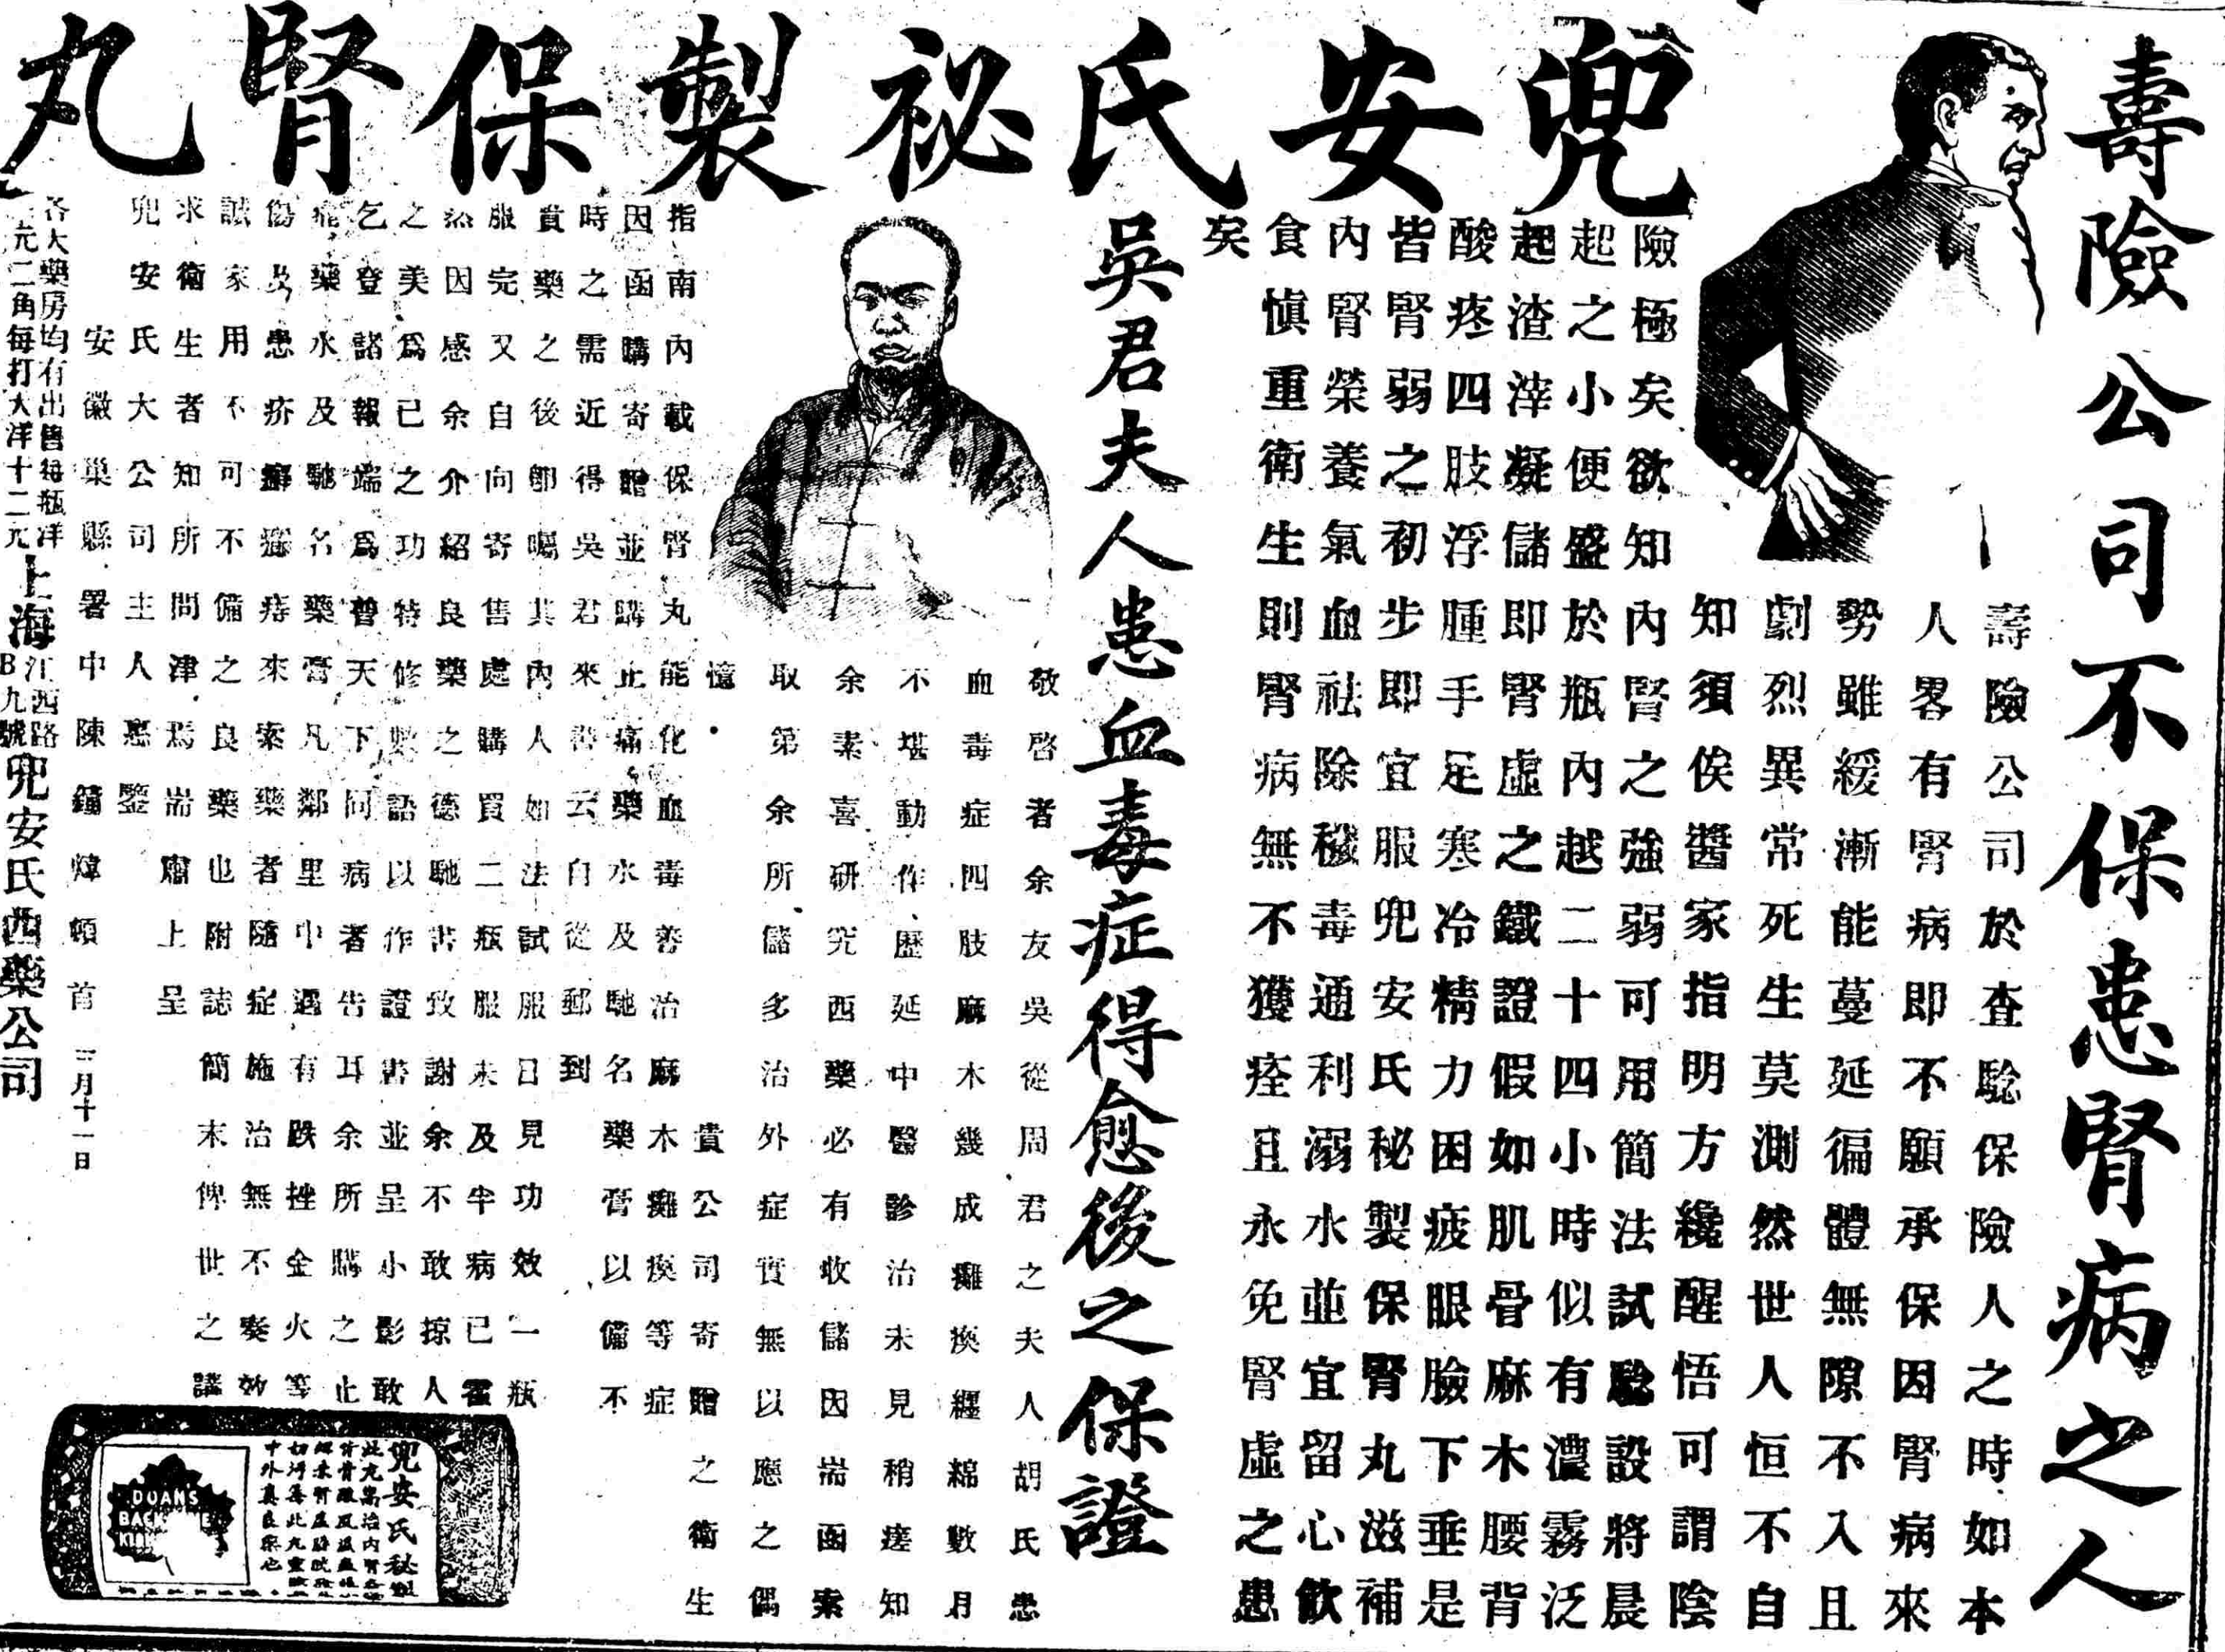 兜安氏祕製保腎丸
壽險公司不保患腎病之人
壽險公司於查騐保險人之時如本
人畧有腎病即不願承保因腎病來
勢雖緩漸能蔓延徧體無隙不入且
劇烈異常死生莫測然世人恒不自
知須俟醫家指明方纔醒悟可謂陰
險極矣欲知內腎之強弱可用簡法試騐設將晨
起之小便盛於瓶內越二十四小時似有濃霧泛
起渣滓凝儲即腎虛之鐵證假如肌骨麻木腰背
酸疼四肢浮腫手足寒冷精力困疲眼臉下垂是
皆腎弱之初步即宜服兜安氏秘製保腎丸滋補
內腎榮養氣血祛除穢毒通利溺水並宜留心飲
食慎重衛生則腎病無不獲痊且永免腎虛之患
矣
吳君夫人患血毒症得愈後之保證
敬啓者余友吳從周君之夫人胡氏患
血毒症四肢麻木幾成癱瘓纏綿數月
不堪動作歷延中醫診治未見稍瘥知
余素喜研究西藥必有收儲因耑函索
取第余所儲多治外症實無以應之偶
憶貴公司寄贈之衛生
指南內載保腎丸能化血毒善治麻木癱瘓等症
因函購寄贈並購止痛藥水及馳名藥膏以備不
時之需近得吳君來書云自從郵到
貴藥之後卽囑其內人如法試服日見功效一瓶
服完又自向寄售處購買二瓶服未及半病已霍
然因感余介紹良藥之德馳書致謝余不敢掠人
之美爲已之功特修數語以作證書並呈小影敢
乞登諸報端爲普天下同病者告耳余所購之止
痛藥水及馳名藥膏凡鄰里中遇有跌挫金火等
傷及患疥癬瘰痔來索藥者隨症施治無不奏效
誠家用不可不備之良藥也附誌簡末俾世之講
求衛生者知所問津焉耑肅上呈
兜安氏大公司主人惠鑒
安徽巢縣署中陳鐘煒頓首 二月十一日
各大藥房均有出售每瓶洋
元二角每打大洋十二元
上海江西路
B九號
兜安氏西藥公司
兜安氏秘製
DOANS
BACK